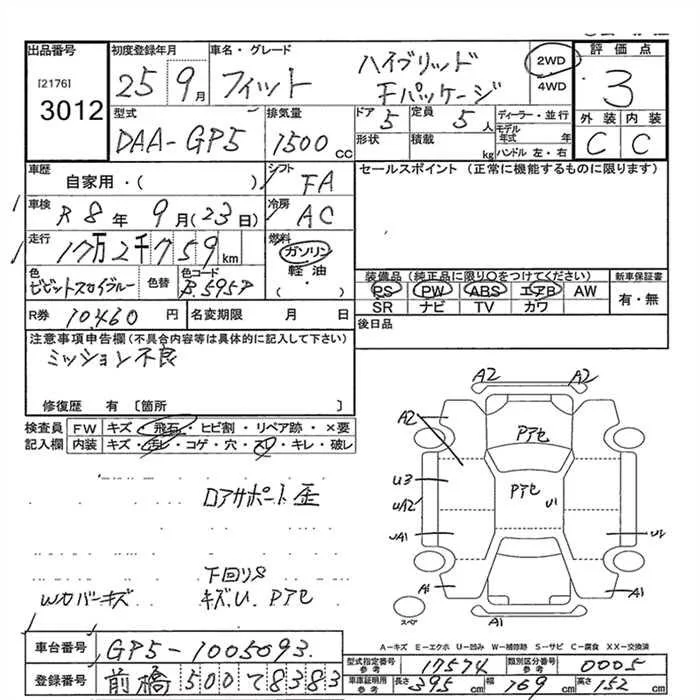 出品番号
[2176]
3012
初度登録年月
25 9月
車名・グレード
フィット ハイブリッド
Fパッケージ
2WD
4WD
評価点
3
外装 内装
C C
型式
DAA-GP5
排気量
1500 cc
ドア
5
定員
5人
形状
積載
kg
ディーラー・並行
モデル年式 年
ハンドル 左・右
車歴
自家用・( )
シフト
FA
車検
R8年 9月(23日)
冷房
AC
走行
17万2千759km
燃料
ガソリン
軽油
・( )
色
ビビットスカイブルー
色替
色コード
B.595P
R券 10,460円
名変期限 月 日
セールスポイント (正常に機能するものに限ります)
装備品 (純正品に限り○をつけてください)
PS PW ABS エアB AW
SR ナビ TV カワ
新車保証書
有・無
後日品
注意事項申告欄(不具合内容等は具体的に記入して下さい)
ミッション不良
修復歴 有 〔箇所 〕
検査員記入欄
FW キズ・飛石・ヒビ割・リペア跡・×要
内装 キズ・汚レ・コゲ・穴・スレ・キレ・破レ
ロアサポート歪
下回りS
Wカバーキズ キズ.U. Pアセ
A2 A2
A2
Pアセ
U3
UA2
Pアセ
U1
UA1
U1
A1
A1
A1
スペア
A-キズ E-エクボ U-凹み W-補修跡 S-サビ C-腐食 XX-交換済
車台番号 GP5-1005093.
登録番号 前橋 500 て 8383
型式指定番号 参考 17574
類別区分番号 参考 0005
車庫証明用 参考 長さ 395cm 幅 169cm 高さ 152cm